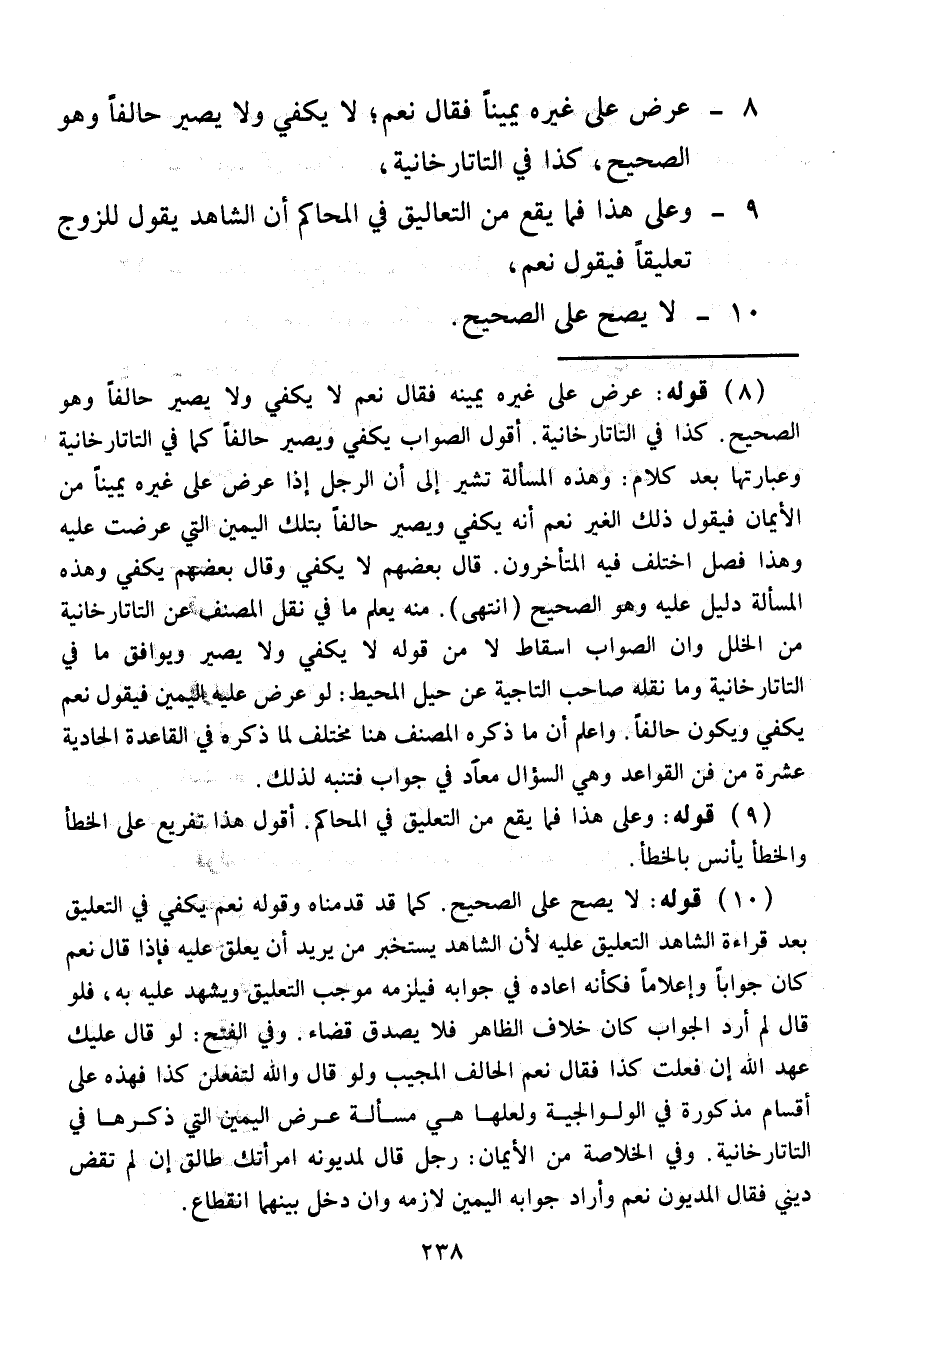 ٨ - عرض على غيره يميناً فقال نعم؛ لا يكفي ولا يصير حالفاً وهو
الصحيح، كذا في التاتارخانية،
٩ - وعلى هذا فما يقع من التعاليق في المحاكم أن الشاهد يقول للزوج
تعليقاً فيقول نعم،
١٠ - لا يصح على الصحيح.
(٨) قوله: عرض على غيره يمينه فقال نعم لا يكفي ولا يصير حالفاً وهو
الصحيح. كذا في التاتارخانية. أقول الصواب يكفي ويصير حالفاً كما في التاتارخانية
وعبارتها بعد كلام: وهذه المسألة تشير إلى أن الرجل إذا عرض على غيره يميناً من
الأيمان فيقول ذلك الغير نعم أنه يكفي ويصير حالفاً بتلك اليمين التي عرضت عليه
وهذا فصل اختلف فيه المتأخرون. قال بعضهم لا يكفي وقال بعضهم يكفي وهذه
المسألة دليل عليه وهو الصحيح (انتهى). منه يعلم ما في نقل المصنف عن التاتارخانية
من الخلل وان الصواب اسقاط لا من قوله لا يكفي ولا يصير ويوافق ما في
التاتارخانية وما نقله صاحب التاجية عن حيل المحيط: لو عرض عليه اليمين فيقول نعم
يكفي ويكون حالفاً. واعلم أن ما ذكره المصنف هنا مختلف لما ذكره في القاعدة الحادية
عشرة من فن القواعد وهي السؤال معاد في جواب فتنبه لذلك.
(٩) قوله: وعلى هذا فما يقع من التعليق في المحاكم. أقول هذا تفريع على الخطأ
والخطأ يأنس بالخطأ.
(١٠) قوله: لا يصح على الصحيح. كما قد قدمناه وقوله نعم يكفي في التعليق
بعد قراءة الشاهد التعليق عليه لأن الشاهد يستخبر من يريد أن يعلق عليه فإذا قال نعم
كان جواباً وإعلاماً فكأنه اعاده في جوابه فيلزمه موجب التعليق ويشهد عليه به، فلو
قال لم أرد الجواب كان خلاف الظاهر فلا يصدق قضاء. وفي الفتح: لو قال عليك
عهد الله إن فعلت كذا فقال نعم الحالف المجيب ولو قال والله لتفعلن كذا فهذه على
أقسام مذكورة في الولوالجية ولعلها هي مسألة عرض اليمين التي ذكرها في
التاتارخانية. وفي الخلاصة من الأيمان: رجل قال لمديونه امرأتك طالق إن لم تقض
ديني فقال المديون نعم وأراد جوابه اليمين لازمه وان دخل بينهما انقطاع.
٢٣٨